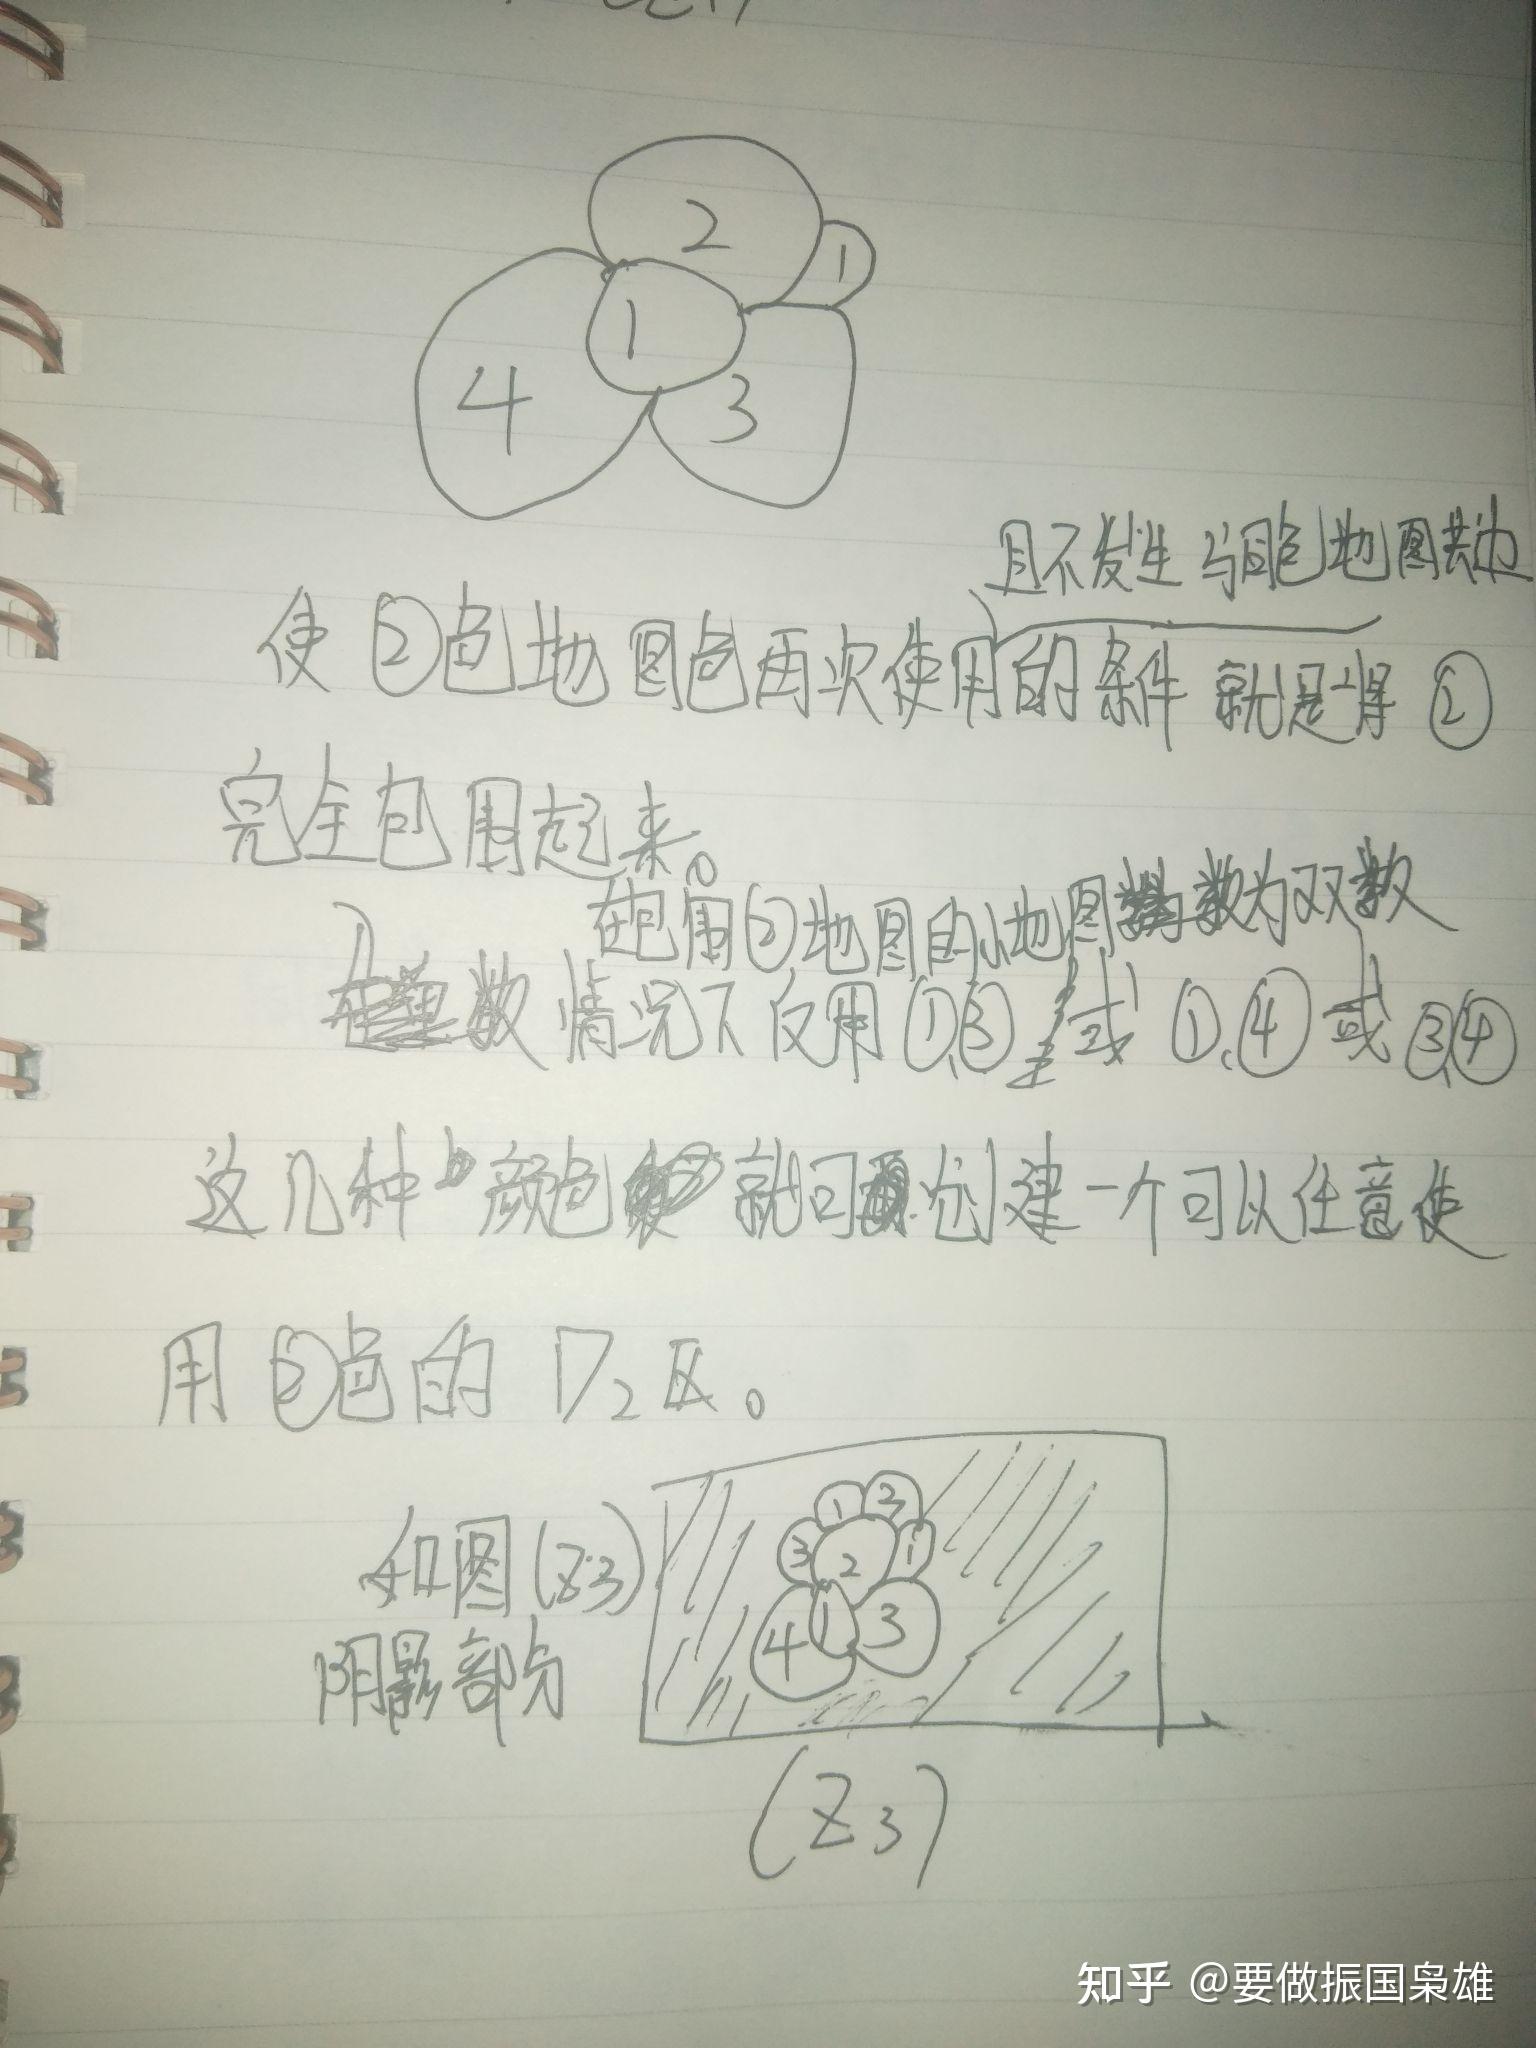 2
1
1
4
3
且不发生与同色地图共边
使②色地图色再次使用的条件就是将②
完全包围起来。
在包围②地图的小地图数为双数
情况下仅用①、③或①、④或③、④
这几种颜色就可创建一个可以任意使
用②色的D₂区。
如图(Z3)
阴影部分
1
2
3
2
1
4
1
3
(Z3)
知乎 @要做振国枭雄